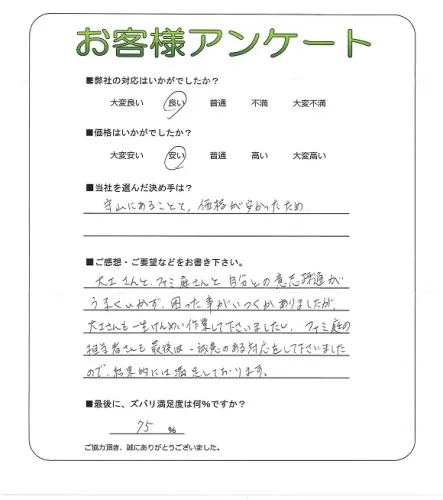 お客様アンケート
■弊社の対応はいかがでしたか?
大変良い 良い 普通 不満 大変不満
■価格はいかがでしたか?
大変安い 安い 普通 高い 大変高い
■当社を選んだ決め手は?
守山にあることと、価格が安かったため
■ご感想・ご要望などをお書き下さい。
大工さんと、ファミ庭さんと自分との意志疎通が
うまくいかず、困った事がいくつかありましたが、
大工さんも一生けんめい作業して下さいましたし、ファミ庭の
担当者さんも最後は、誠意のある対応をして下さいました
ので、結果的には満足しております。
■最後に、ズバリ満足度は何%ですか?
75 %
ご協力頂き、誠にありがとうございました。